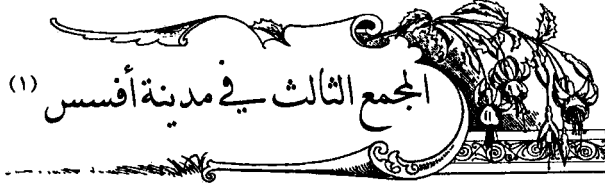 المجمع الثالث في مدينة أفسس (١)